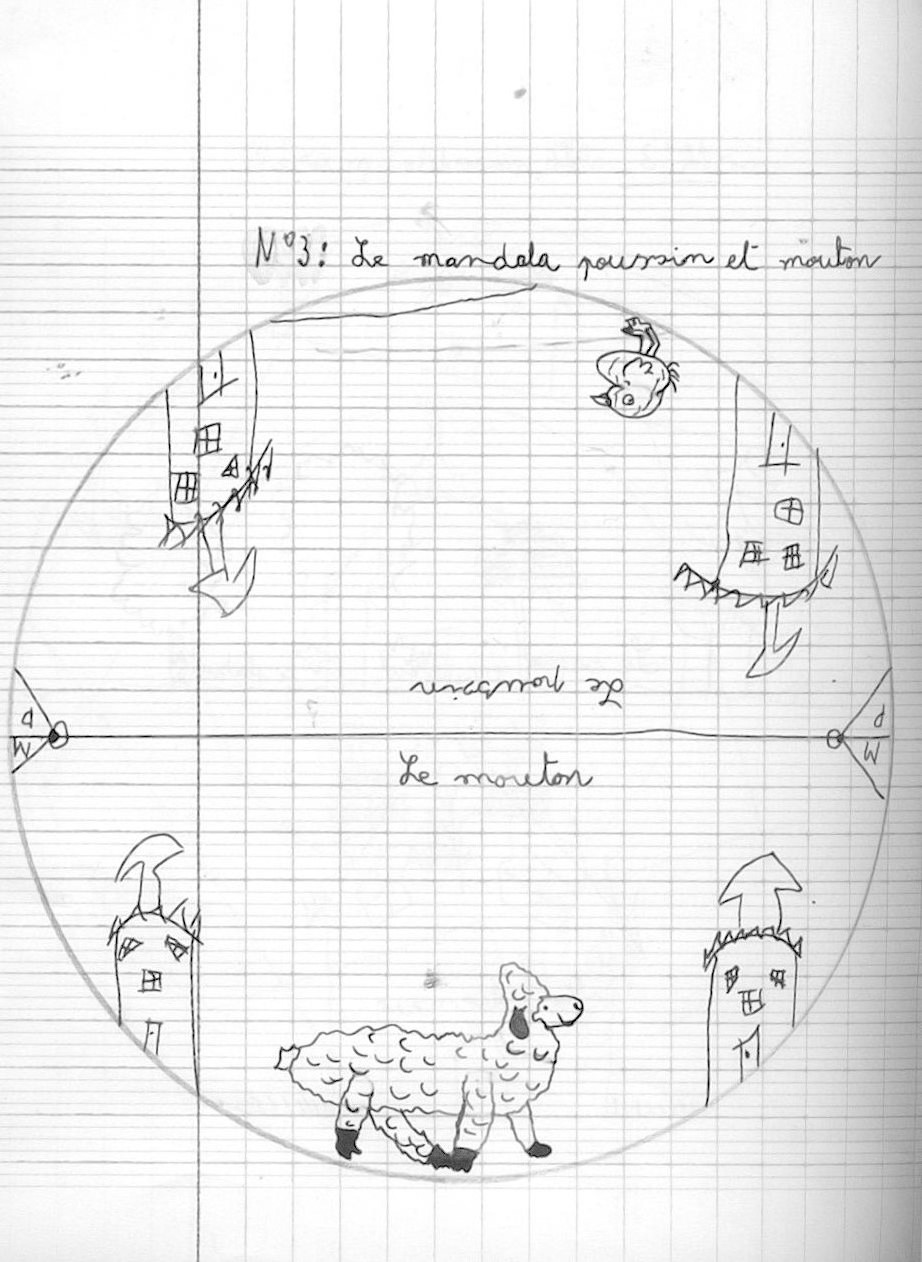 N°3: Le mandala poussin et mouton
Le poussin
P
M
P
M
Le mouton